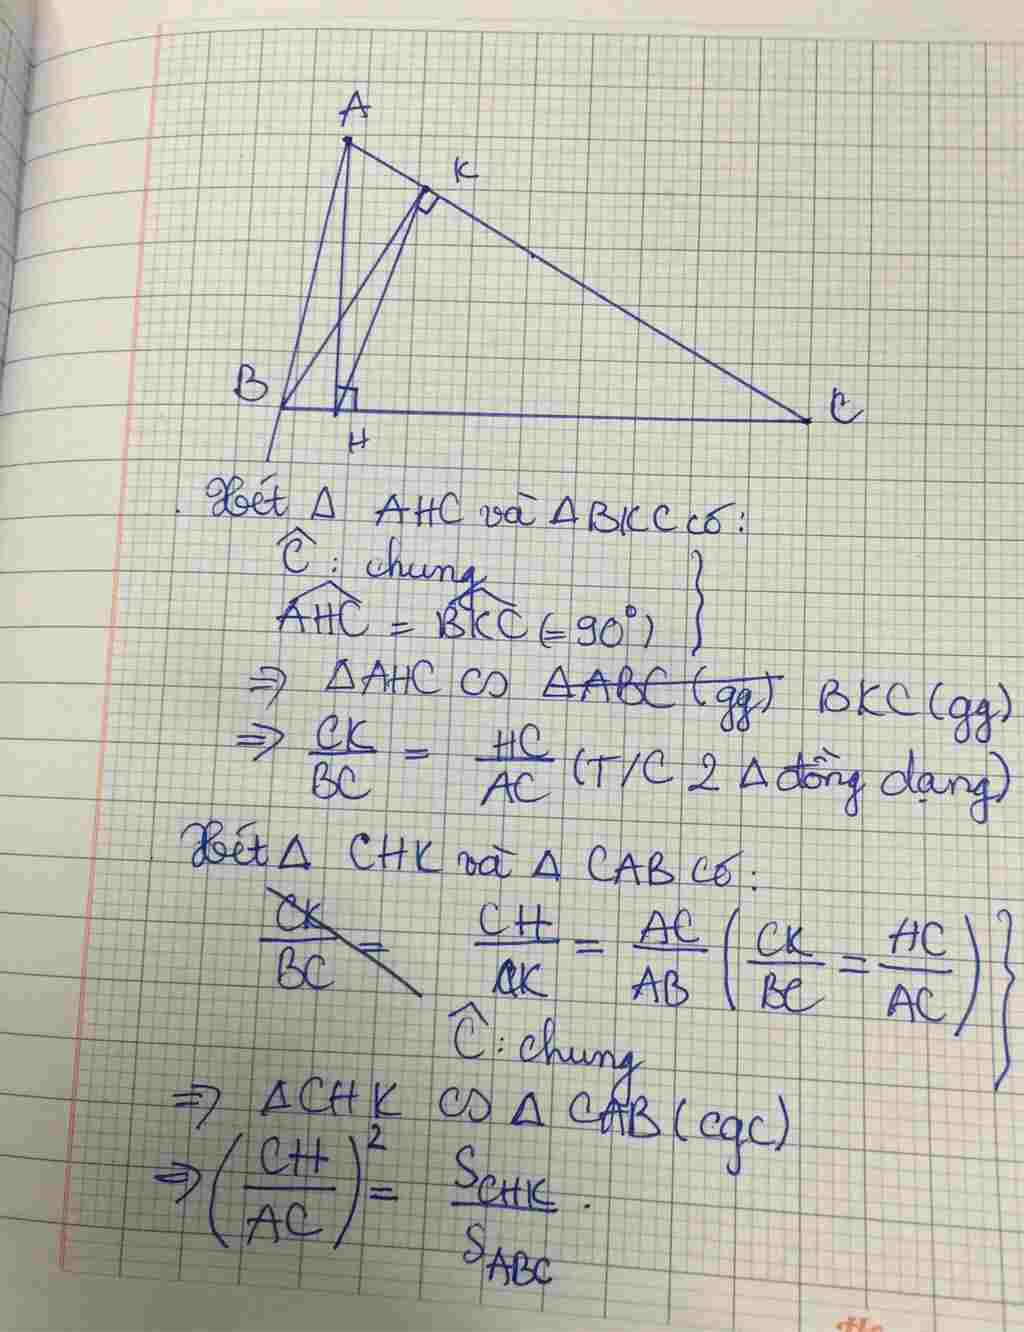 A
K
B
H
C
Xét Δ AHC và Δ BKC có:
Ĉ : chung
AHC = BKC (= 90°) }
⇒ Δ AHC ∽ Δ ABC (gg) BKC (gg)
⇒ CK/BC = HC/AC (T/C 2 Δ đồng dạng)
Xét Δ CHK và Δ CAB có:
CK/BC = CH/CK = AC/AB (CK/BC = HC/AC) }
Ĉ : chung
⇒ Δ CHK ∽ Δ CAB (cgc)
⇒ (CH/AC)² = S_CHK/S_ABC .